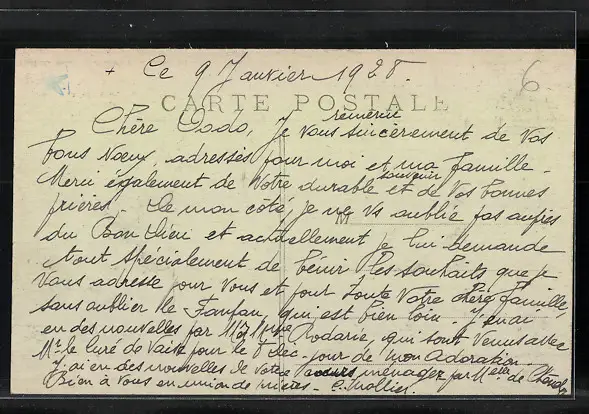 + Ce 9 Janvier 1928.
6
CARTE POSTALE
Chère Dodo, Je vous remercie sincèrement de vos
bons vœux, adressés pour moi et ma famille -
Merci également de votre durable souvenir et de vos bonnes
prières - De mon côté, je ne vs oublie pas auprès
du Bon Dieu et actuellement je lui demande
tout spécialement de bénir les souhaits que je
vous adresse pour vous et pour toute votre chère famille,
sans oublier le Fanfan, qui est bien loin - J'en ai
eu des nouvelles par Mr et Mme Rodarie, qui sont venus avec
Mr le Curé de Vaise pour le 8 déc. jour de mon Adoration.
J'ai eu des nouvelles de votre ménager par Melle de
Bien à vous en union de prières -